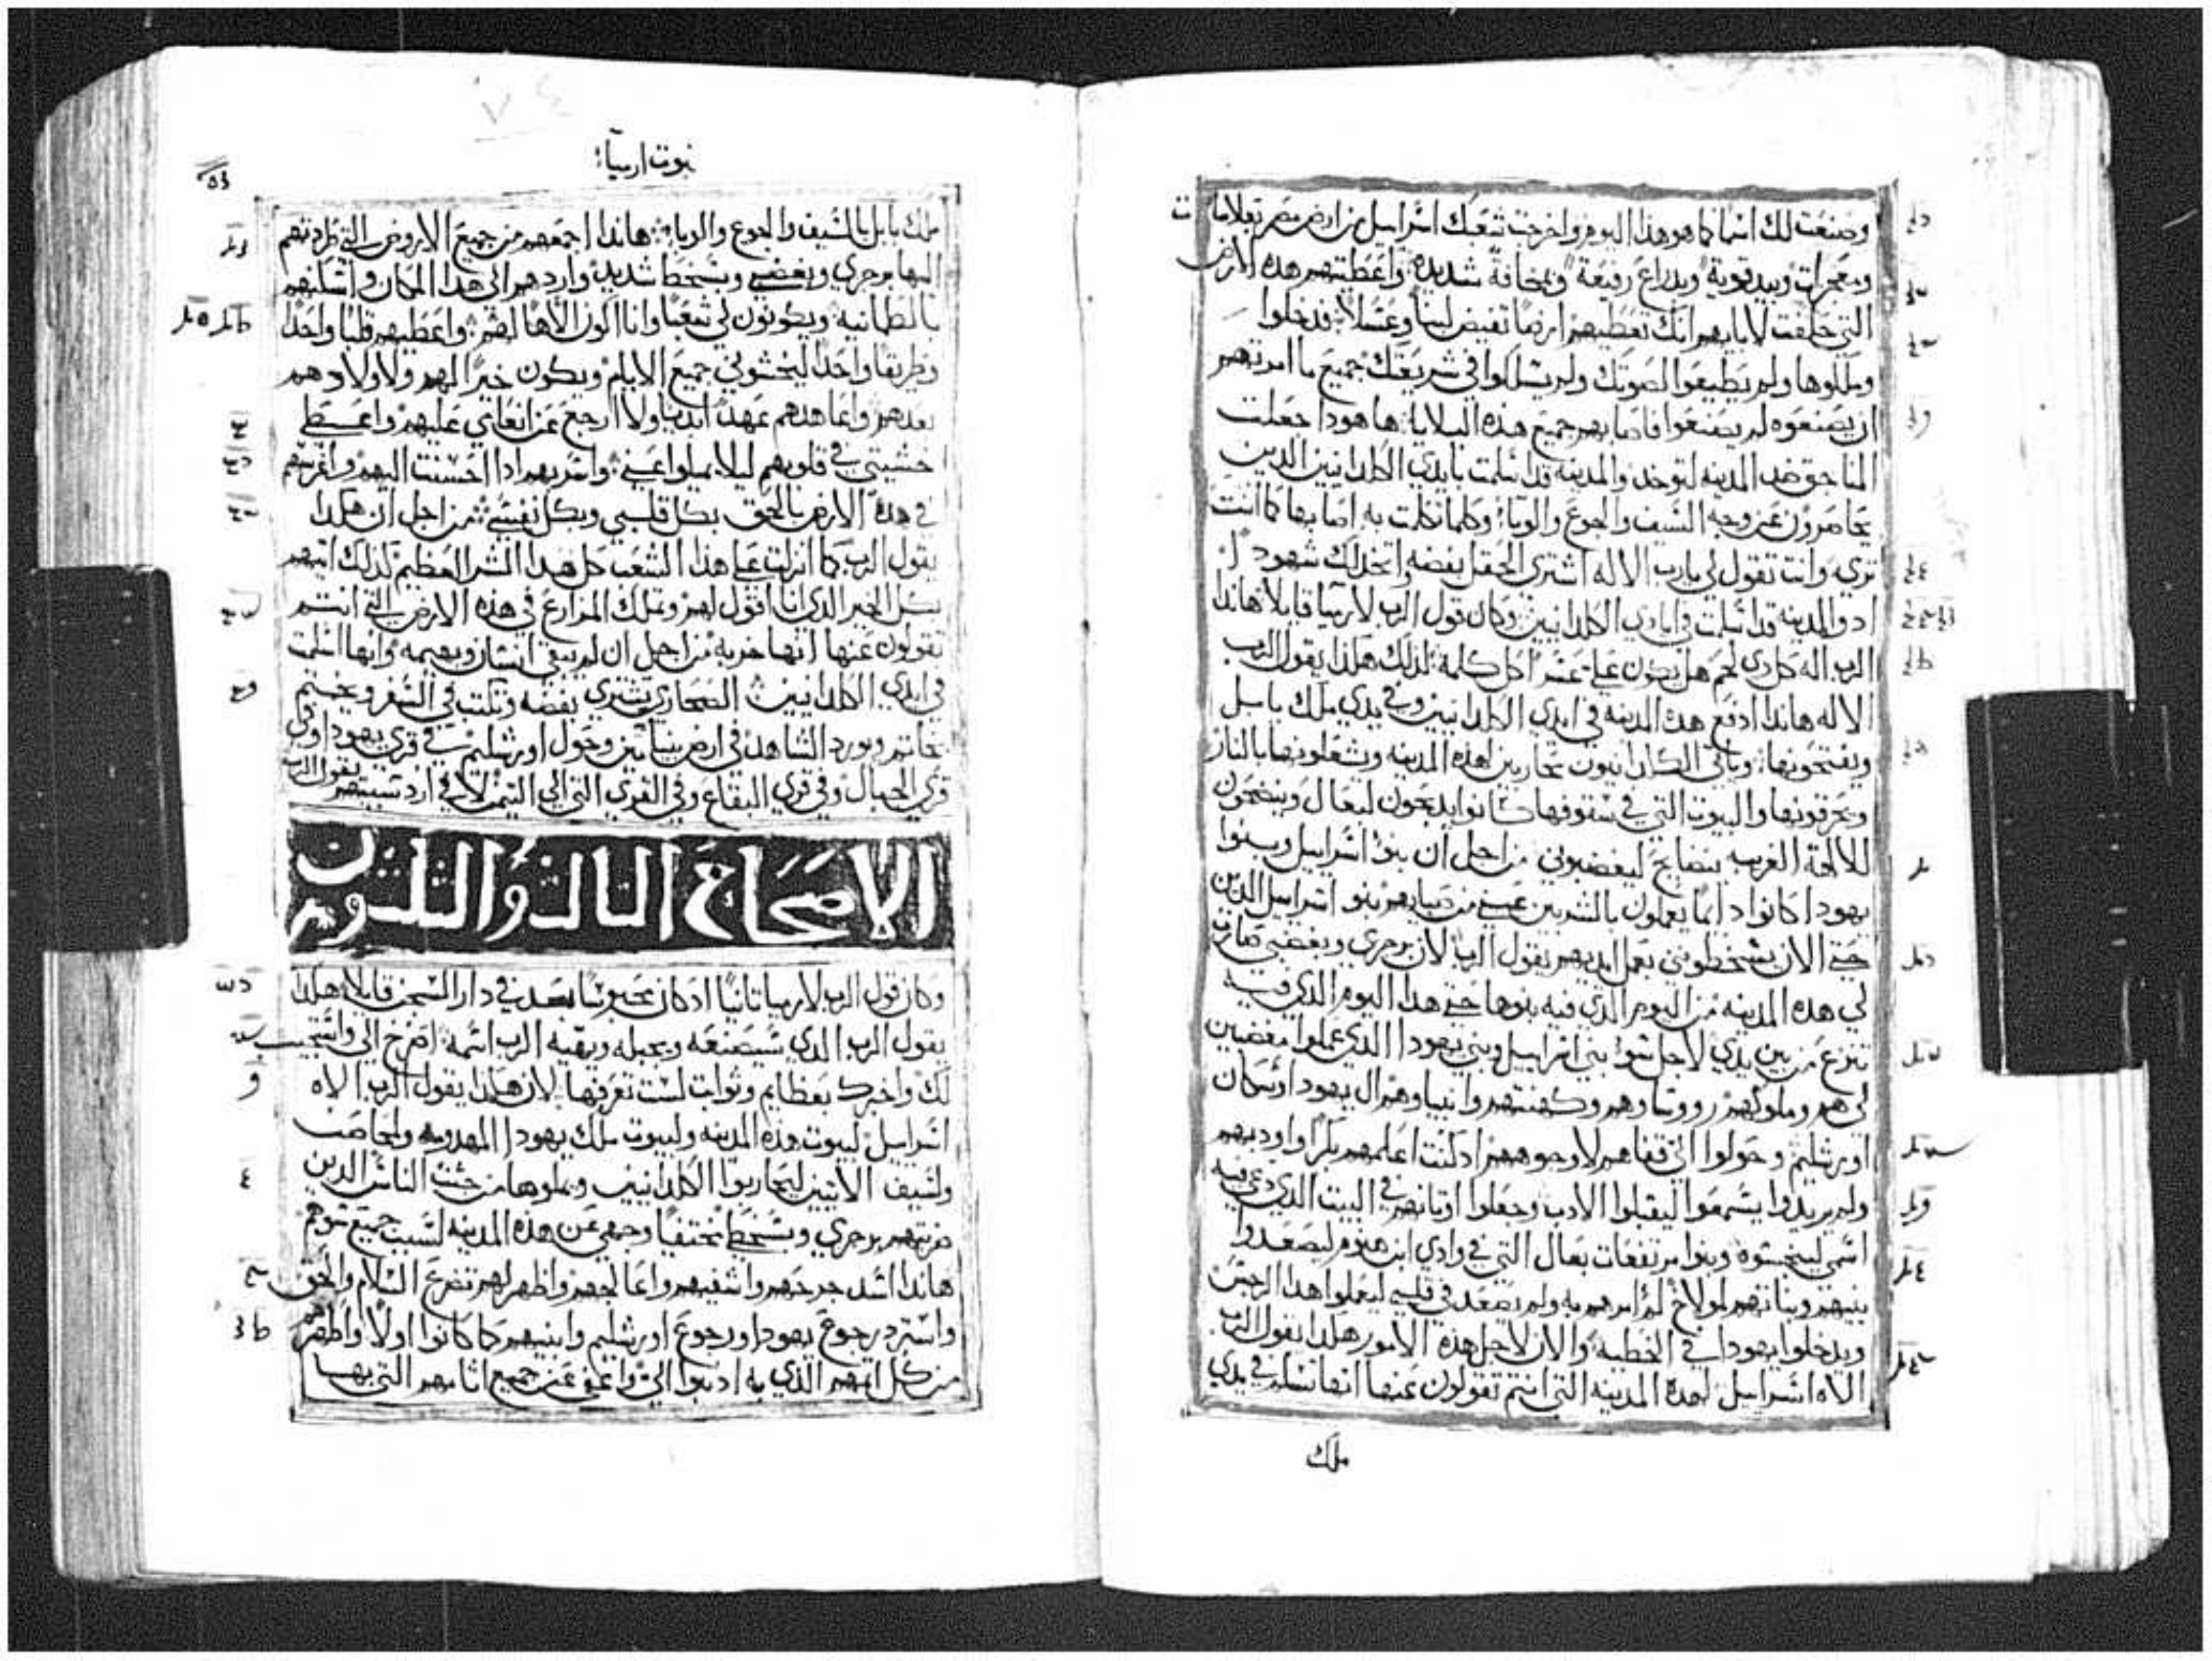 وصنعت لك اسما كما هو هذا اليوم واخرجت شعبك اسراييل من ارض مصر بعلامات
ومعجزات وبيد قوية وبدراع رفيعة وبمخافة شديدة واعطيتهم هذه الارض
التي حلفت لابايهم انك تعطيهم ارضا تفيض لبنا وعسلا فدخلوا
وملكوها ولم يطيعوا لصوتك ولم يسلكوا في شريعتك جميع ما امرتهم
ان يصنعوه لم يصنعوا فاصابهم جميع هذه البلايا ها هودا جعلت
المناجق ضد المدينه لتوخد والمدينه قد اسلمت بايدي الكلدانيين الدين
يحاصرون عن وجه السيف والجوع والوبا وكلما تكلمت به اصابها كما انت
تري وانت تقول لي يا رب الاله اشتري الحقل بفضه واتخد لك شهودا
اد والمدينه قد اسلمت في ايادي الكلدانيين وكان قول الرب لارميا قايلا هاندا
الرب اله كل دي لحم هل يكون علي عسرا كل كلمة لدلك هكذا يقول الرب
الاله هاندا ادفع هده المدينه في ايدي الكلدانيين وفي يدي ملك بابل
ويفتحونها وياتي الكلدانيون محاربين لهذه المدينه ويشعلونها بالنار
ويحرقونها والبيوت التي في سقوفها كانوا يدبحون لبعال وينضحون
للالهة الغريبه بنضايح ليغضبوني من اجل ان بنوا اسراييل وبنوا
يهودا كانوا دايما يعملون بالشر بين عيني من صباهم بنو اسراييل الدين
حتي الان يسخطوني بعمل ايديهم يقول الرب لان برجزي وبغضبي صارت
لي هده المدينه من اليوم الذي فيه بنوها حتي هدا اليوم الدي فيه
تنزع من بين يدي لاجل سوا بني اسراييل وبني يهودا الدي عملوا مغضبين
لي هم وملوكهم وروساوهم وكهنتهم وانبياوهم ال يهودا وسكان
اورشليم وحولوا الي قفاهم لا وجوههم اد كنت اعلمهم بكرا واودبهم
ولم يريدوا يسمعوا ليقبلوا الادب وجعلوا اوتانهم في البيت الدي دعي فيه
اسمي لينجسوه وبنوا مرتفعات بعال التي في وادي ابن هنوم ليصعدوا
بنيهم وبناتهم لمولاخ لم امرهم به ولم يصعد في قلبي ليعملوا هدا الرجس
ويدخلوا يهودا في الخطيه والان لاجل هذه الامور هكدا يقول الرب
الاه اسراييل لهدة المدينه التي انتم تقولون عنها انها تسلم في يدي
ملك
نبوت ارميا
ملك بابل بالسيف والجوع والوبا هاندا اجمعهم من جميع الاروض التي طردتهم
اليها برجزي وبغضبي وبسخط شديد واردهم الي هدا المكان واسكنهم
بالطمانيه ويكونون لي شعبا وانا اكون الاها لهم واعطيهم قلبا واحدا
وطريقا واحدا ليخشوني جميع الايام ويكون خيرا لهم ولاولادهم
بعدهم واعاهدهم عهدا ابديا ولا ارجع عن انعامي عليهم واعطي
خشيتي في قلوبهم ليلا يميلوا عني واسر بهم ادا احسنت اليهم واغرسهم
في هدة الارض بالحق بكل قلبي وبكل نفسي من اجل ان هكدا
يقول الرب كما انزلت علي هذا الشعب كل هدا الشر العظيم لذلك اتيهم
بكل الخير الدي انا اقول لهم وتملك المزارع في هذه الارض التي انتم
تقولون عنها انها خربه من اجل ان لم يبقي انسان وبهيمه وانها اسلمت
في ايدي الكلدانيين الصحاري تشتري بفضه وتكتب في السفر ويختم
بخاتم ويورد الشاهد في ارض بنيامين وحول اورشليم في قري يهودا وفي
قري الجبال وفي قري البقاع وفي القري التي الي التيمن لاني ارد سبيهم يقول الرب
الاصحاح التالت والتلتون
وكان قول الرب لارميا تانيا ادكان محبوسا بعد في دار السجن قايلا هكدا
يقول الرب الدي سيصنعه ويجبله ويقيه الرب اسمه اصرخ الي واستجيب
لك واخبرك بعظايم وثوابت لست تعرفها لان هكذا يقول الرب الاه
اسراييل لبيوت هذه المدينه ولبيوت ملك يهودا المهدومه ولمحاصب
ولسيف الاتين ليحاربوا الكلدانيين ويملوها من جثث الناس الدين
ضربتهم برجزي وبسخط مختفيا وجهي عن هذه المدينه لسبب جميع سوهم
هاندا اشد جرحهم واشفيهم واعالجهم واظهر لهم تضرع السلام والحق
واسترد رجوع يهودا ورجوع اورشليم وابنيهم كما كانوا اولا واطهرهم
من كل اتمهم الذي به ادنبوا الي واعفي عن جميع اتامهم التي بها